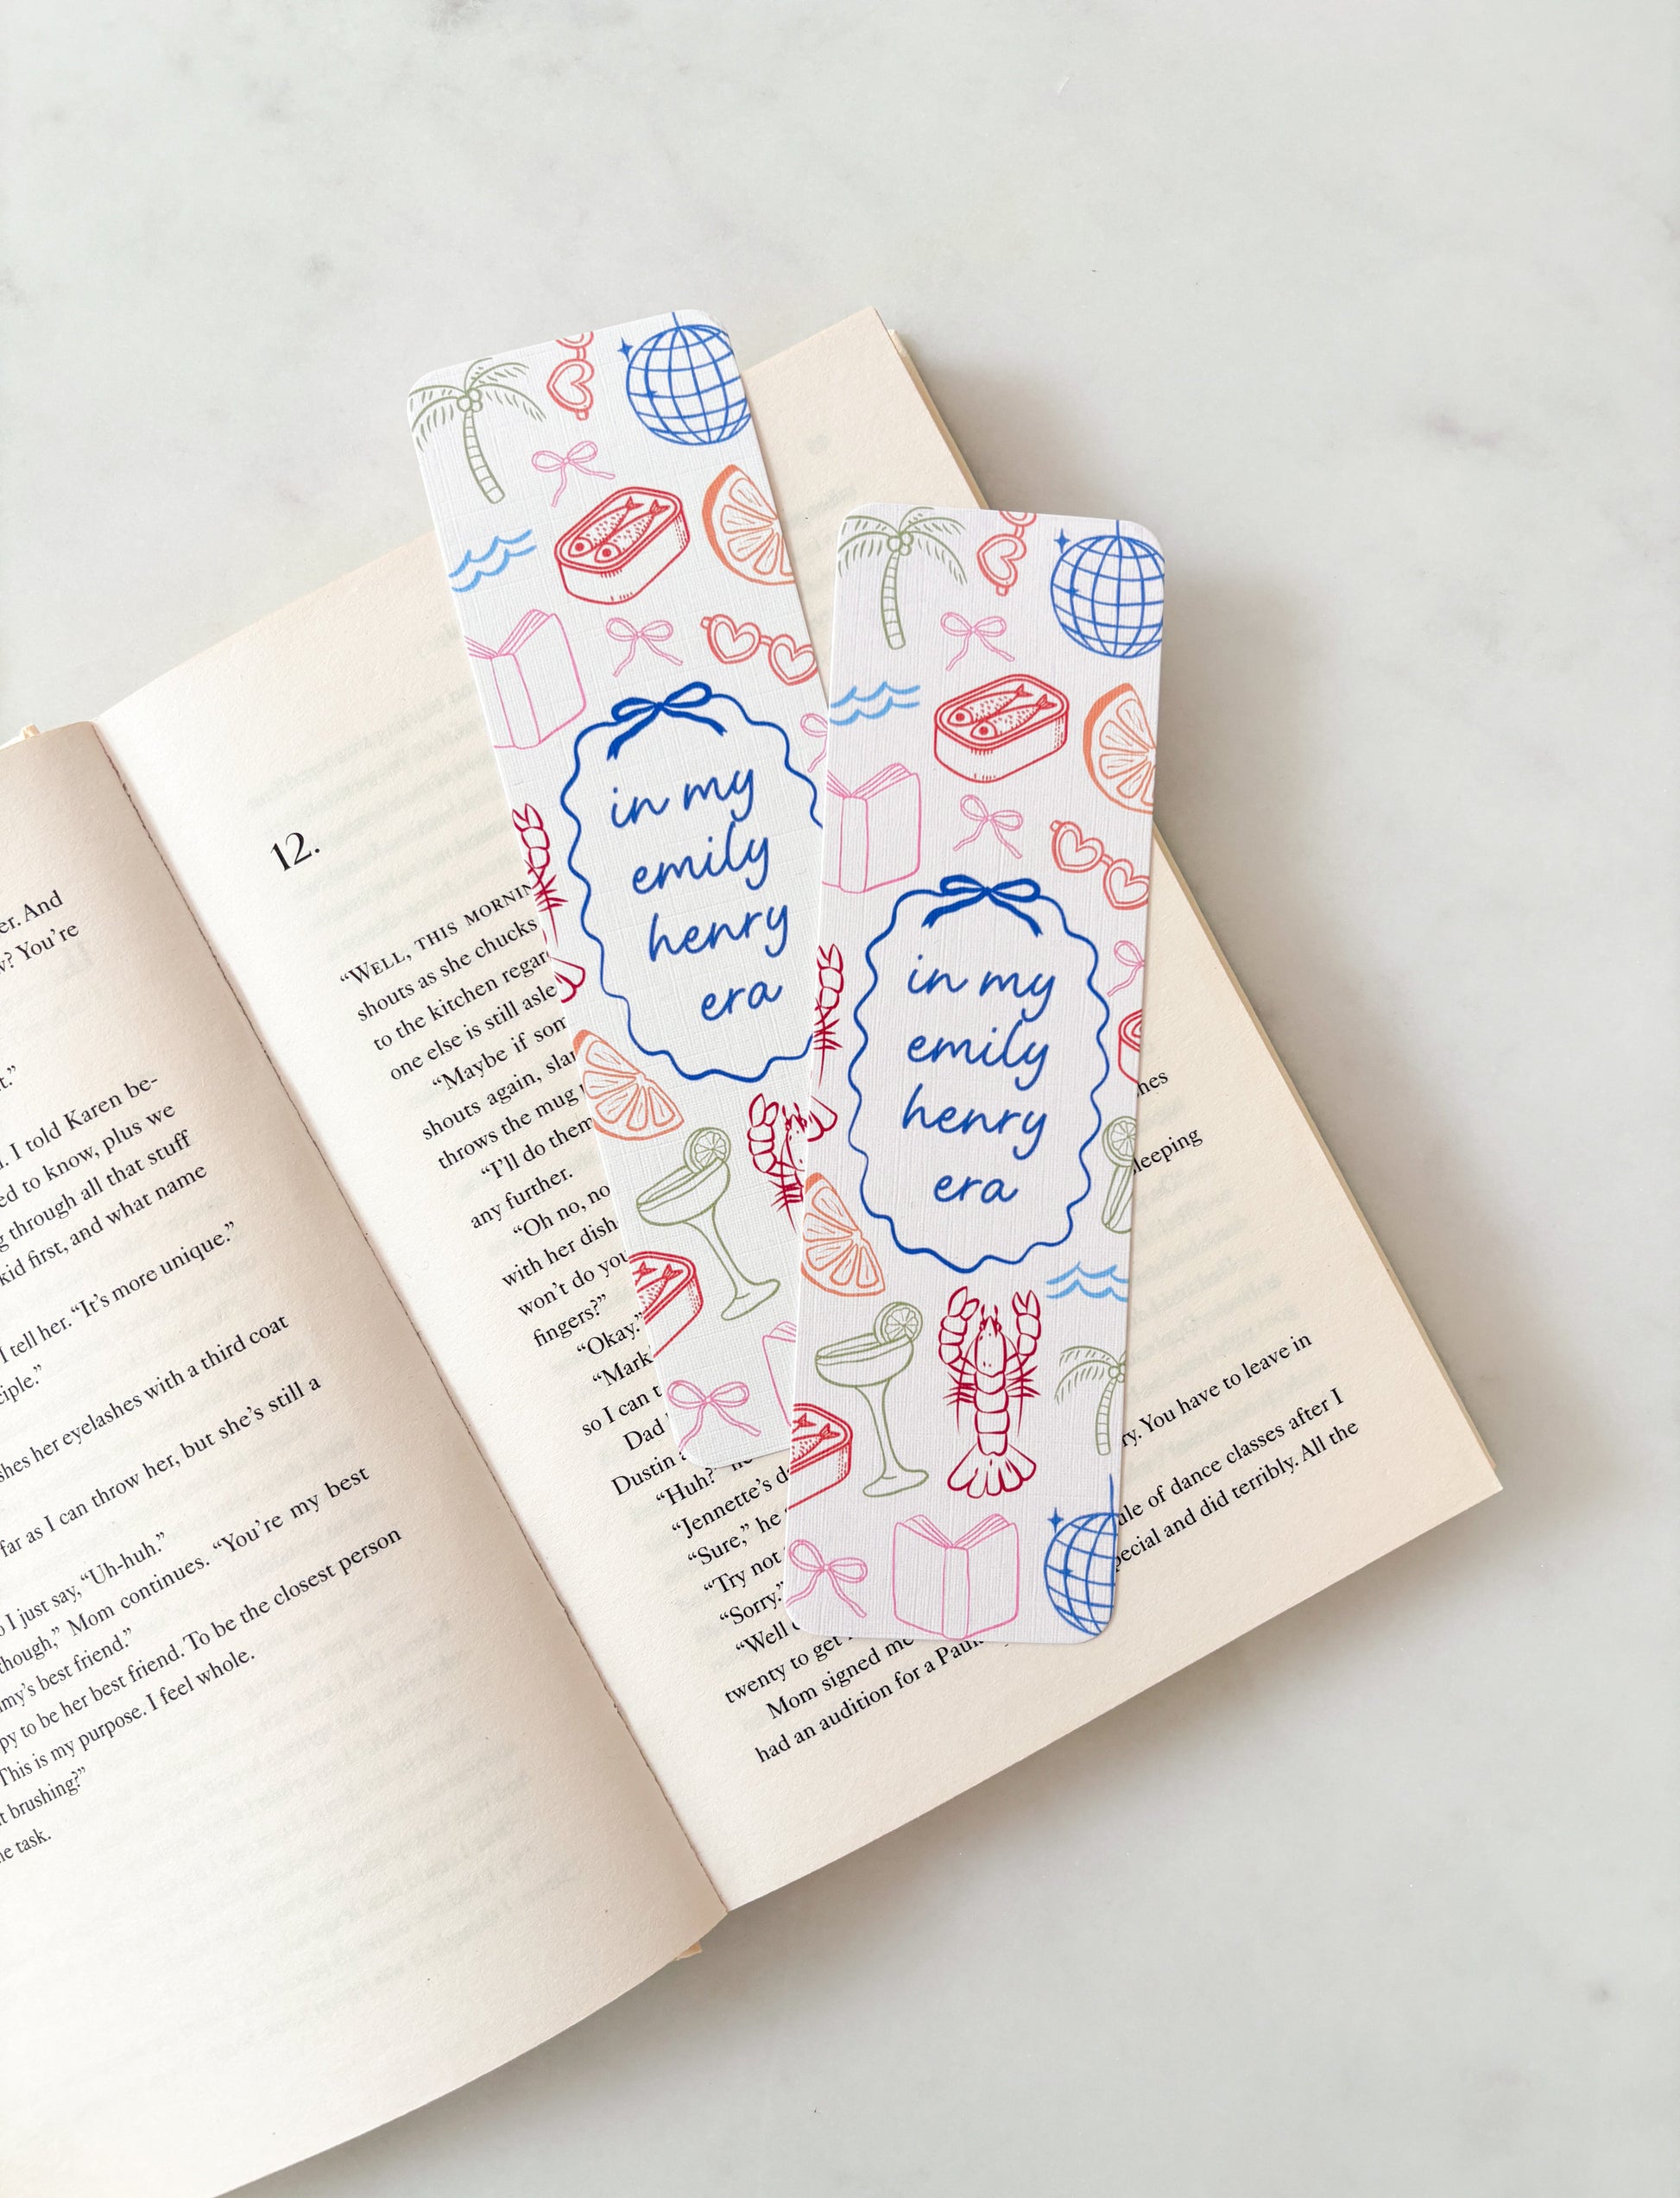 er. And
? You're
t."
. I told Karen be-
ed to know, plus we
g through all that stuff
kid first, and what name
I tell her. "It's more unique."
iple."
shes her eyelashes with a third coat
far as I can throw her, but she's still a
I just say, "Uh-huh."
though," Mom continues. "You're my best
my's best friend."
py to be her best friend. To be the closest person
This is my purpose. I feel whole.
t brushing?"
e task.
12.
"WELL, THIS MORNIN
shouts as she chucks
to the kitchen regar
one else is still asle
"Maybe if som
shouts again, slam
throws the mug
"I'll do them
any further.
"Oh no, no
with her dish
won't do you
fingers?"
"Okay."
"Mark
so I can t
Dad
Dustin
"Huh?" he
"Jennette's d
"Sure," he
"Try not
"Sorry."
"Well
twenty to get
Mom signed me
had an audition for a Paul
hes
leeping
ry. You have to leave in
ale of dance classes after I
pecial and did terribly. All the
in my
emily
henry
era
in my
emily
henry
era